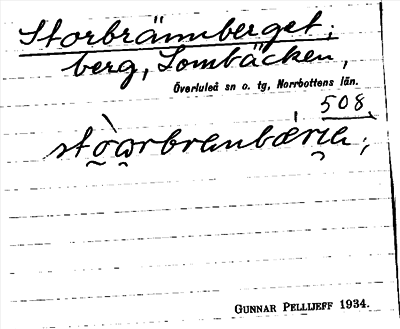 Storbrännberget;
berg, Lombäcken,
Överluleå sn o. tg, Norrbottens län.
508
GUNNAR PELLIJEFF 1934.